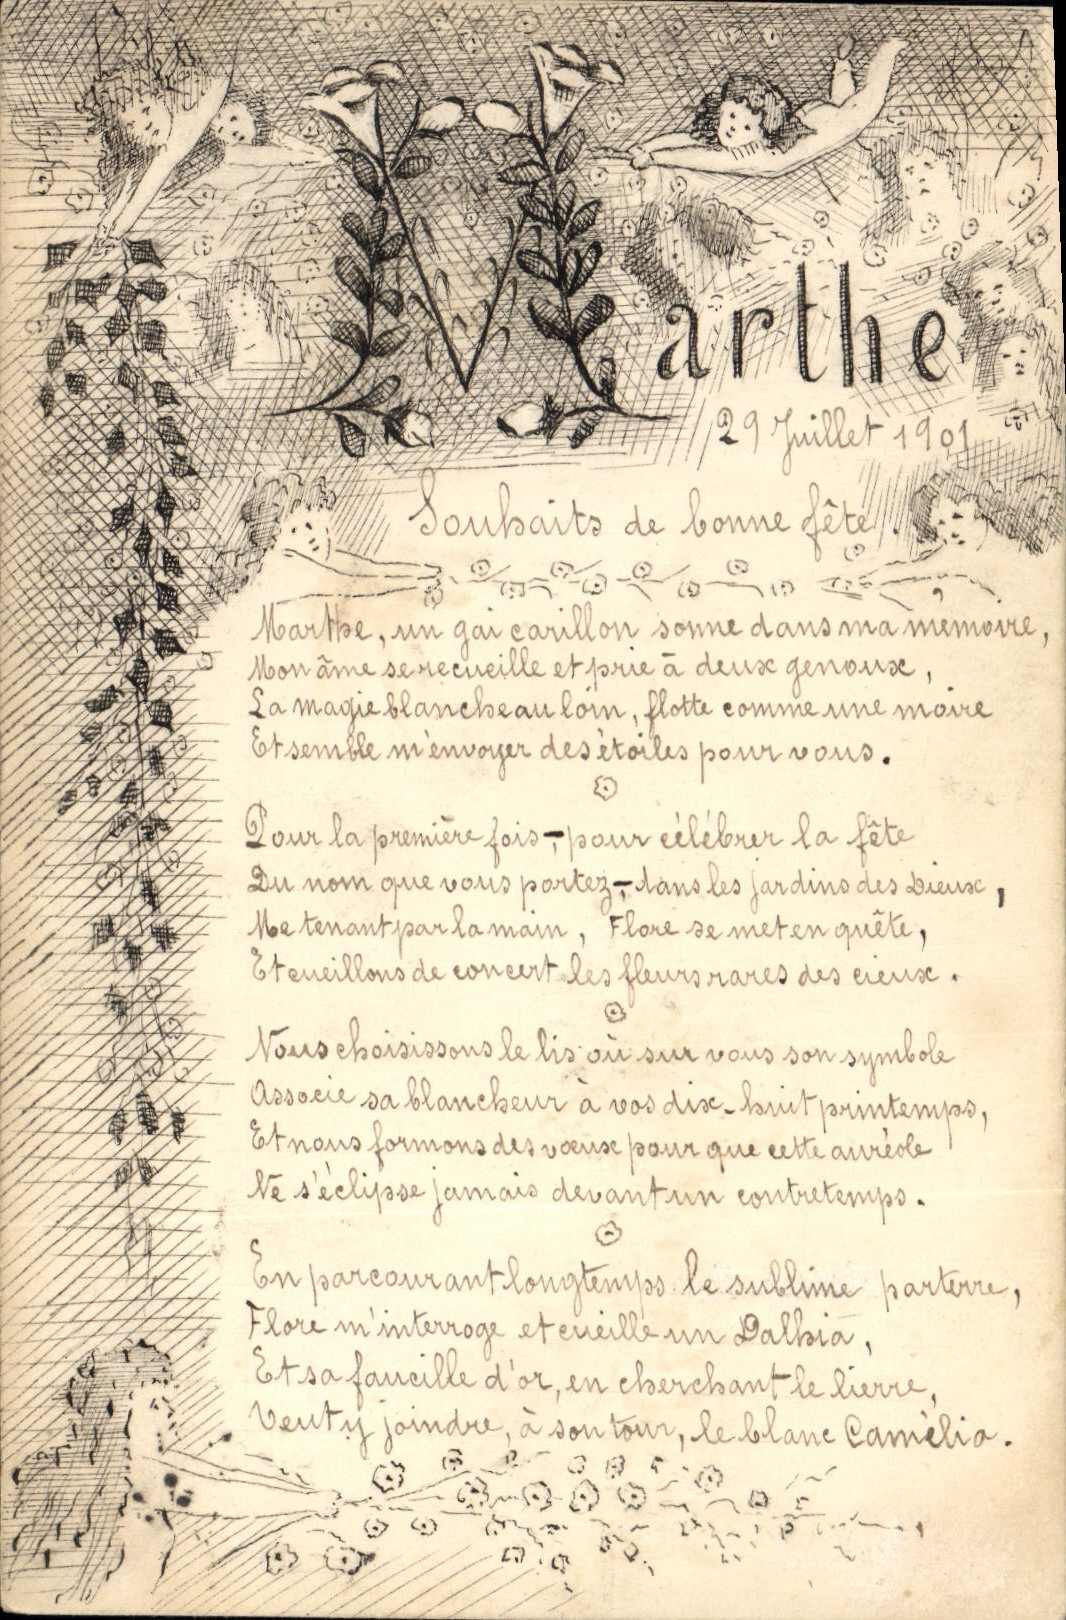 Marthe
29 Juillet 1901
Souhaits de bonne fête.
Marthe, un gai carillon sonne dans ma mémoire,
Mon âme se recueille et prie à deux genoux,
La magie blanche au loin, flotte comme une moire
Et semble m'envoyer des étoiles pour vous.
Pour la première fois,– pour célébrer la fête
Du nom que vous portez,– dans les jardins des Dieux,
Me tenant par la main, Flore se met en quête,
Et cueillons de concert les fleurs rares des cieux.
Nous choisissons le lis où sur vous son symbole
Associe sa blancheur à vos dix-huit printemps,
Et nous formons des vœux pour que cette auréole
Ne s'éclipse jamais devant un contretemps.
En parcourant longtemps le sublime parterre,
Flore m'interroge et cueille un Dalhia,
Et sa faucille d'or, en cherchant le lierre,
Veut y joindre, à son tour, le blanc Camélia.